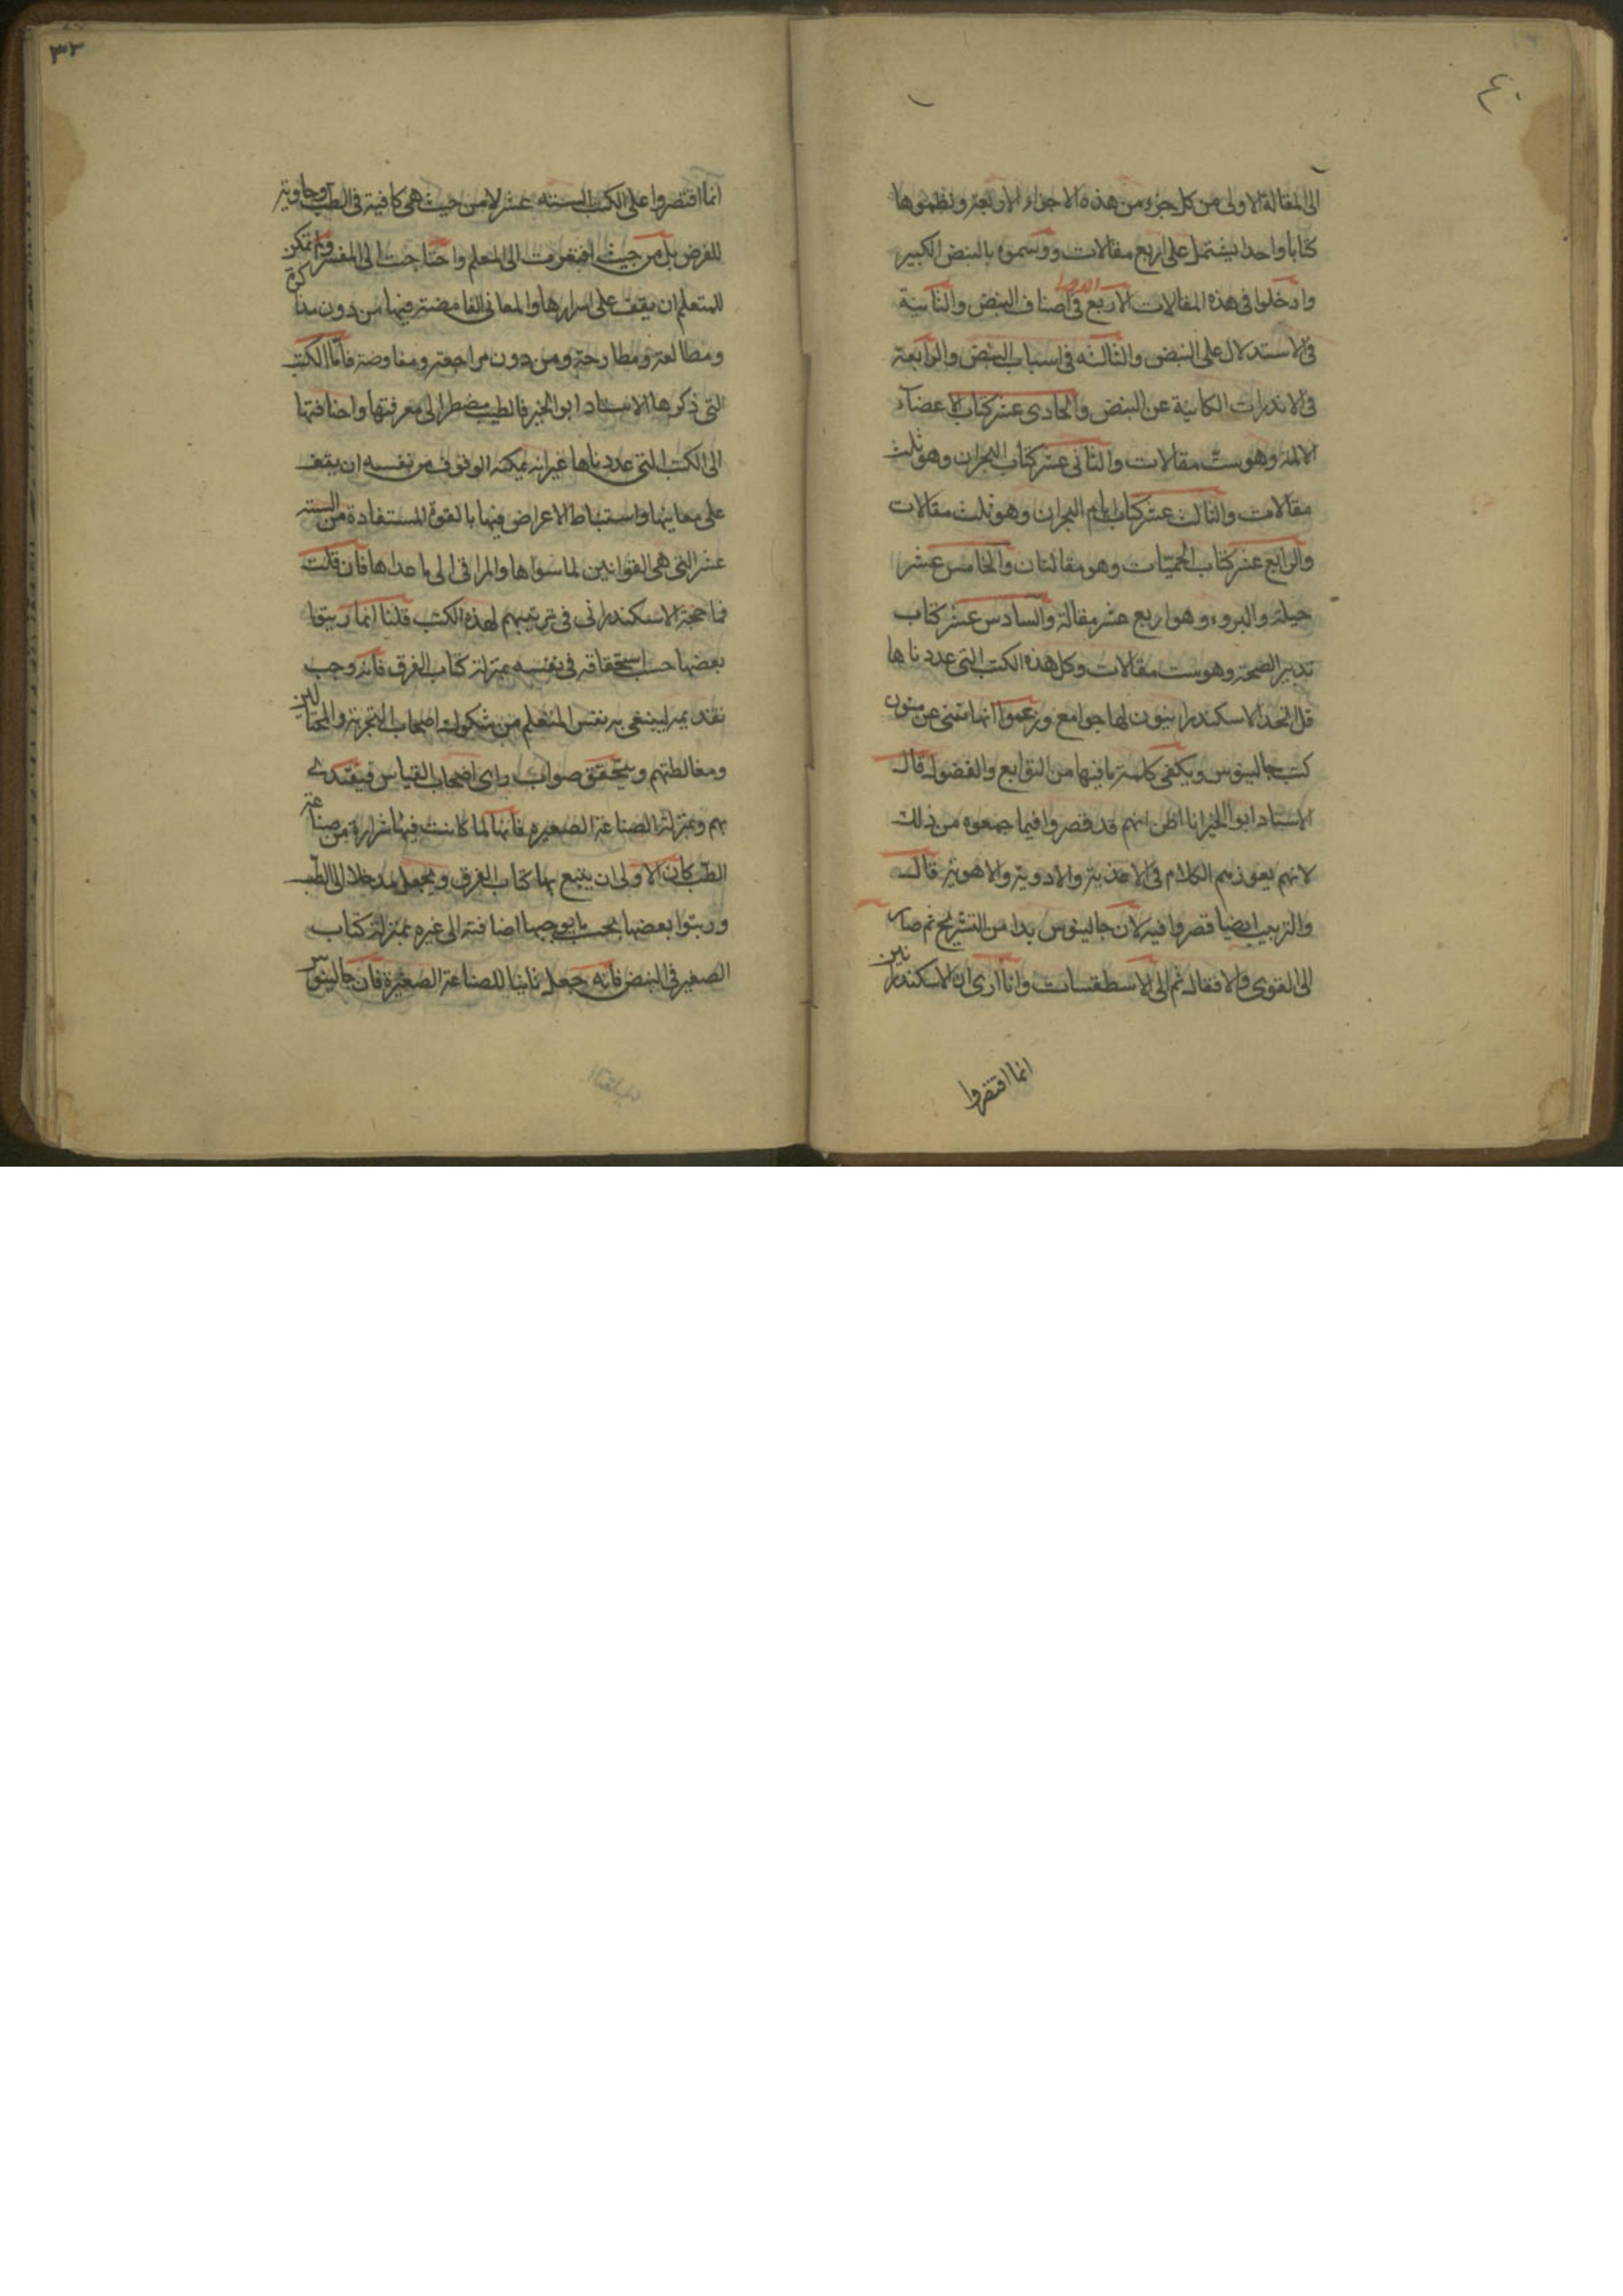 ٤٠
الى المقالة الاولى من كل جزء من هذه الاجزاء الاربعة ونظموها
كتابا واحدا يشتمل على اربع مقالات ووسموه بالنبض الكبير
وادخلوا فى هذه المقالات الاربع الاولى فى اصناف النبض والثانية
فى الاستدلال على النبض والثالثه فى اسباب النبض والرابعة
فى الانذارات الكاينة عن النبض والحادى عشر كتاب الاعضاء
الالمة وهو ست مقالات والثانى عشر كتاب البحران وهو ثلث
مقالات والثالث عشر كتاب ايام البحران وهو ثلث مقالات
والرابع عشر كتاب الحميّات وهو مقالتان والخامس عشر
حيلة والبروء وهو اربع عشر مقالة والسادس عشر كتاب
تدبير الصحة وهو ست مقالات وكل هذه الكتب التى عددناها
قد اتخذ الاسكندرانيون لها جوامع وزعموا انها تغنى عن متون
كتب جالينوس ويكفى كلمة ما فيها من التوابع والفضول قال
الاستاد ابو الخير انا اظن انهم قد قصروا فيما جمعوه من ذلك
لانهم يعوزهم الكلام فى الاغذية والادوية والاهوية قال
والترتيب ايضا قصروا فيه لان جالينوس بدا من التشريح ثم صار
الى القوى والافعال ثم الى الاسطقسات وانا ارى ان الاسكندرانين
انما اقتصروا
٣٢
انما اقتصروا على الكتب الستة عشر لا من حيث هى كافية فى الطب وحاوية
للغرض بل من حيث افتقرت الى المعلم واحتاجت الى المفسر ولم تمكن
للمتعلم ان يقف على اسرارها والمعانى الغامضة فيها من دون مذاكرة
ومطالعة ومطارحة ومن دون مراجعة ومفاوضة فاما الكتب
التى ذكرها الاستاد ابو الخير فالطبيب مضطر الى معرفتها واضافتها
الى الكتب التى عددناها غير انه يمكنه الوقوف من نفسه ان يقف
على معاينها واستنباط الاعراض فيها بالقوة المستفادة من الستة
عشر التى هى القوانين لما سواها والمراقى الى ما عداها فان قلت
فما حجة الاسكندرانى فى ترتيبهم لهذه الكتب قلنا انما رتبوا
بعضها حسب استحقاقه فى نفسه بمنزلة كتاب الفرق فانه وجب
تقديمه لينقى به نفس المتعلم من شكوك اصحاب التجربة والمحتالين
ومغالطتهم ويتحقق صواب راى اصحاب القياس فيقتدى
بهم وبمنزلة الصناعة الصغيرة فانها لما كانت فيها شرارة من صناعة
الطب كان الاولى ان يتبع بها كتاب الفرق ويجعل مدخلا الى الطب
ورتبوا بعضها بحسب ما يوجبها اضافته الى غيره بمنزلة كتاب
الصغير فى النبض فانه جعل ثانيا للصناعة الصغيرة فان جالينوس